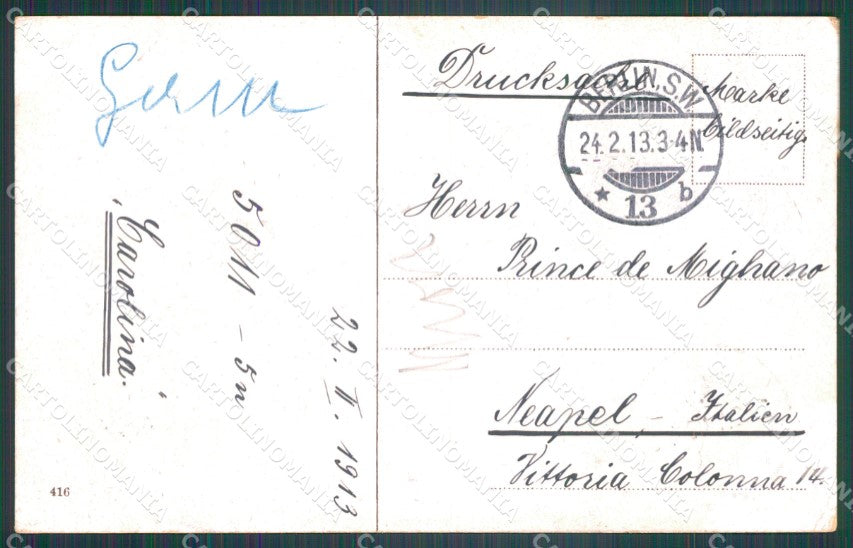 Drucksache
Marke
bildseitig
BERLIN, S.W.
24.2.13.3-4N.
* 13 b
Herrn
Prince de Mighano
Neapel - Italien
Vittoria Colonna 14.
„Carolina“
5011 - 5n
22. II. 1913
416
CARTOLINOMANIA